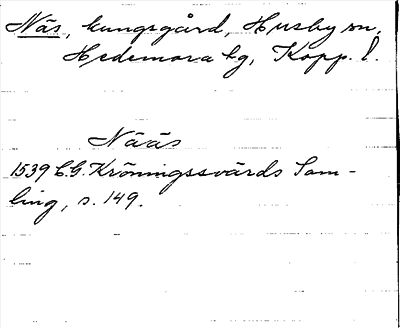 Näs, kungsgård, Husby sn,
Hedemora tg, Kopp. l.
Nääs
1539 C.G. Kröningssvärds Sam-
ling, s. 149.